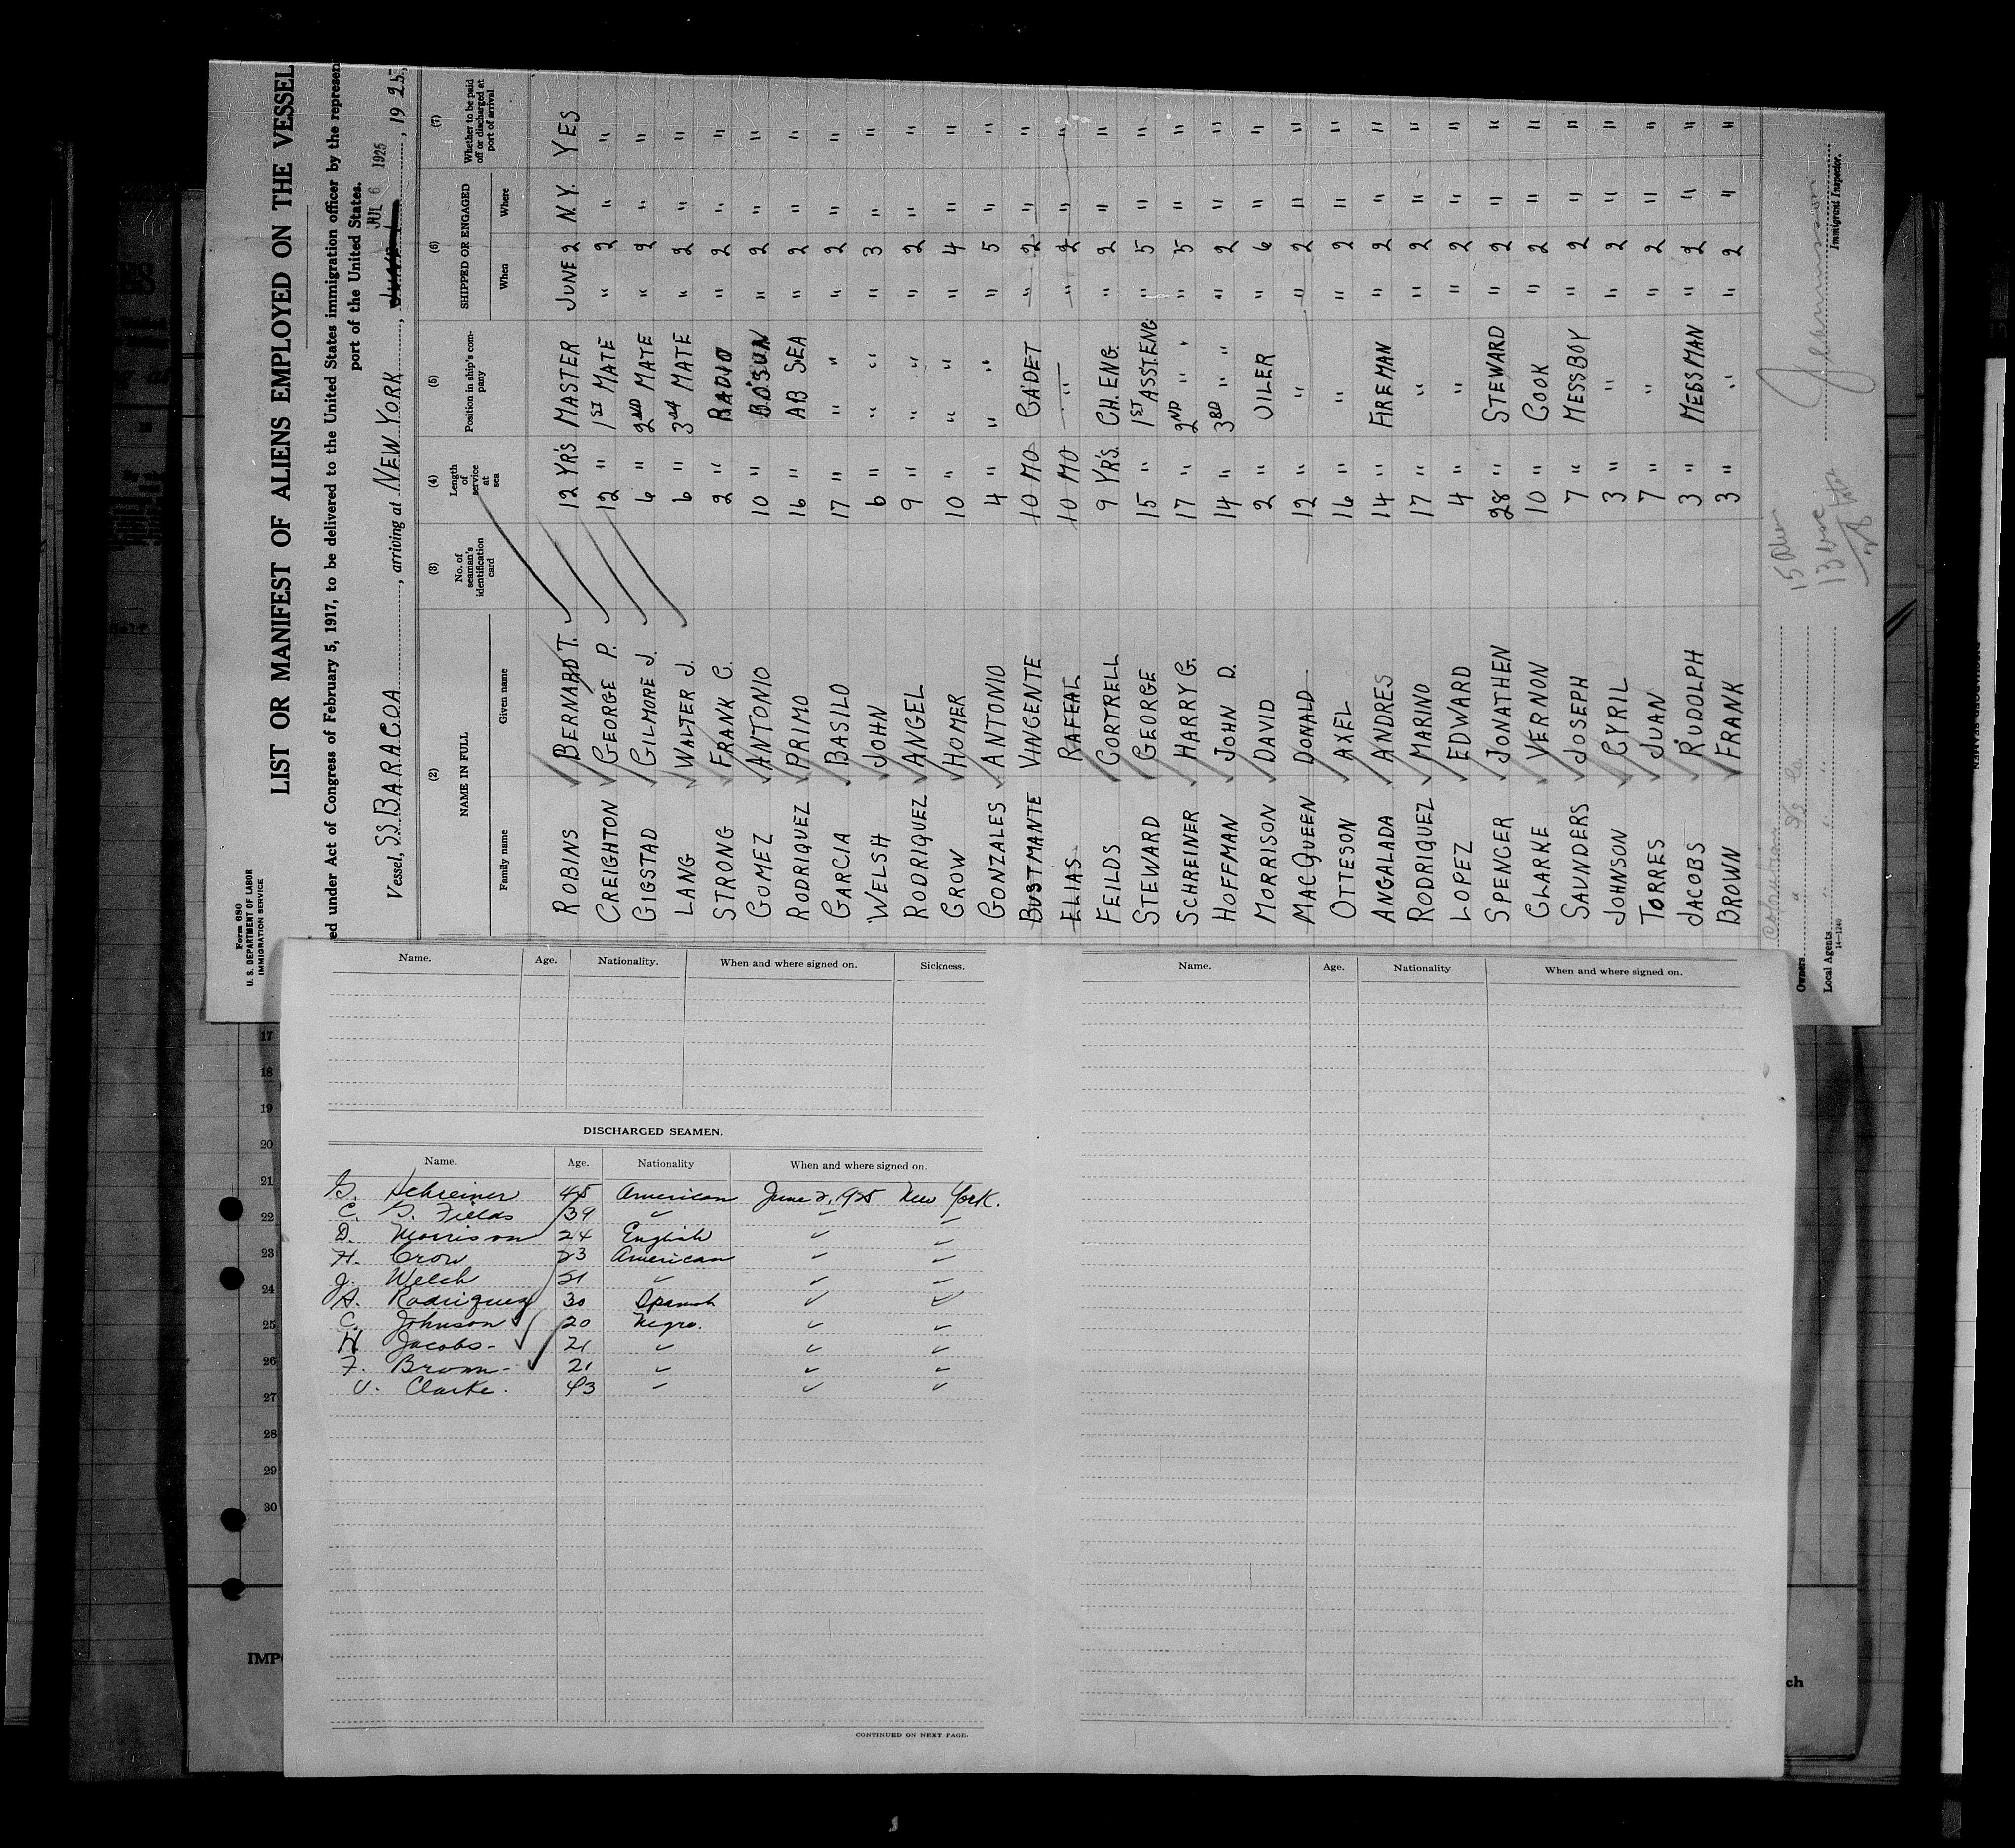 Form 680
U. S. DEPARTMENT OF LABOR
IMMIGRATION SERVICE
LIST OR MANIFEST OF ALIENS EMPLOYED ON THE VESSEL
ed under Act of Congress of February 5, 1917, to be delivered to the United States immigration officer by the represen
port of the United States.
JUL 6 1925
Vessel, SS BARACOA, arriving at NEW YORK, 1925,
(2) (3) (4) (5) (6) (7)
NAME IN FULL No. of seaman's identification card Length of service at sea Position in ship's company SHIPPED OR ENGAGED Whether to be paid off or discharged at port of arrival
Family name Given name When Where
ROBINS BERNARD T. 12 YR'S MASTER JUNE 2 N.Y. YES
CREIGHTON GEORGE P. 12 " 1ST MATE " 2 " "
GIGSTAD GILMORE J. 6 " 2ND MATE " 2 " "
LANG WALTER J. 6 " 3rd MATE " 2 " "
STRONG FRANK C. 2 " RADIO " 2 " "
GOMEZ ANTONIO 10 " BO'SUN " 2 " "
RODRIQUEZ PRIMO 16 " AB SEA " 2 " "
GARCIA BASILO 17 " " " " 2 " "
WELSH JOHN 6 " " " " 3 " "
RODRIQUEZ ANGEL 9 " " " " 2 " "
CROW HOMER 10 " " " " 4 " "
GONZALES ANTONIO 4 " " " " 5 " "
BUSTMANTE VINCENTE 10 MO CADET " 2 " "
ELIAS RAFEAL 10 MO " " 2 " "
FEILDS CORTRELL 9 YR'S. CH. ENG. " 2 " "
STEWARD GEORGE 15 " 1ST ASST. ENG. " 5 " "
SCHREINER HARRY G. 17 " 2ND " " " 5 " "
HOFFMAN JOHN D. 14 " 3RD " " " 2 " "
MORRISON DAVID 2 " OILER " 6 " "
MACQUEEN DONALD 12 " " " 2 " "
OTTESON AXEL 16 " " " 2 " "
ANGALADA ANDRES 14 " FIREMAN " 2 " "
RODRIQUEZ MARINO 17 " " " 2 " "
LOPEZ EDWARD 4 " " " 2 " "
SPENCER JONATHEN 28 " STEWARD " 2 " "
CLARKE VERNON 10 " COOK " 2 " "
SAUNDERS JOSEPH 7 " MESSBOY " 2 " "
JOHNSON CYRIL 3 " " " 2 " "
TORRES JUAN 7 " " " 2 " "
JACOBS RUDOLPH 3 " MESSMAN " 2 " "
BROWN FRANK 3 " " " 2 " "
Owners
Local Agents
14-1240
Immigrant Inspector.
Name. Age. Nationality. When and where signed on. Sickness.
DISCHARGED SEAMEN.
Name. Age. Nationality When and where signed on.
G. Schreiner 45 American June 2, 1925 New York.
C. G. Fields 39 " " "
D. Morrison 24 English " "
H. Crow 23 American " "
J. Welch 21 " " "
A. Rodriguez 30 Spanish " "
C. Johnson 20 Negro. " "
Jacobs - 21 " " "
F. Brown - 21 " " "
V. Clarke. 43 " " "
CONTINUED ON NEXT PAGE.
Name. Age. Nationality When and where signed on.
17
18
19
20
21
22
23
24
25
26
27
28
29
30
IMP
ch